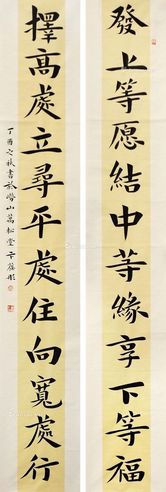 發上等愿結中等緣享下等福
擇高處立尋平處住向寬處行
丁酉之秋書於
山萬松堂